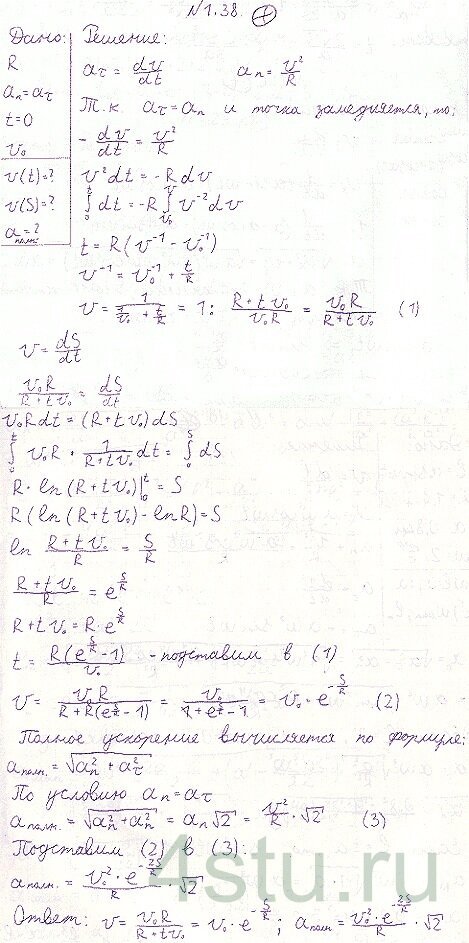 N 1.38. +
Дано: Решение:
R
aₙ = a_τ
t = 0
v₀
v(t) = ?
v(S) = ?
a_полн. = ?
a_τ = dv/dt   aₙ = v²/R
Т.к. a_τ = aₙ и точка замедляется, то:
- dv/dt = v²/R
v² dt = -R dv
∫₀ᵗ dt = -R ∫_{v₀}^{v} v⁻² dv
t = R(v⁻¹ - v₀⁻¹)
v⁻¹ = v₀⁻¹ + t/R
v = 1/(1/v₀ + t/R) = 1 : (R + t v₀)/(v₀R) = v₀R/(R + t v₀)   (1)
v = dS/dt
v₀R/(R + t v₀) = dS/dt
v₀R dt = (R + t v₀) dS
∫₀ᵗ v₀R · 1/(R + t v₀) dt = ∫₀ˢ dS
R · ln (R + t v₀)|₀ᵗ = S
R (ln (R + t v₀) - ln R) = S
ln (R + t v₀)/R = S/R
(R + t v₀)/R = e^{S/R}
R + t v₀ = R · e^{S/R}
t = R(e^{S/R} - 1)/v₀ - подставим в (1)
v = v₀R/(R + R(e^{S/R} - 1)) = v₀/(1 + e^{S/R} - 1) = v₀ · e^{-S/R}   (2)
Полное ускорение вычисляется по формуле:
a_полн. = √(aₙ² + a_τ²)
По условию aₙ = a_τ
a_полн. = √(aₙ² + aₙ²) = aₙ√2 = v²/R · √2   (3)
Подставим (2) в (3):
a_полн. = v₀² · e^{-2S/R}/R · √2
Ответ: v = v₀R/(R + t v₀) = v₀ · e^{-S/R} ; a_полн = v₀² · e^{-2S/R}/R · √2
4stu.ru